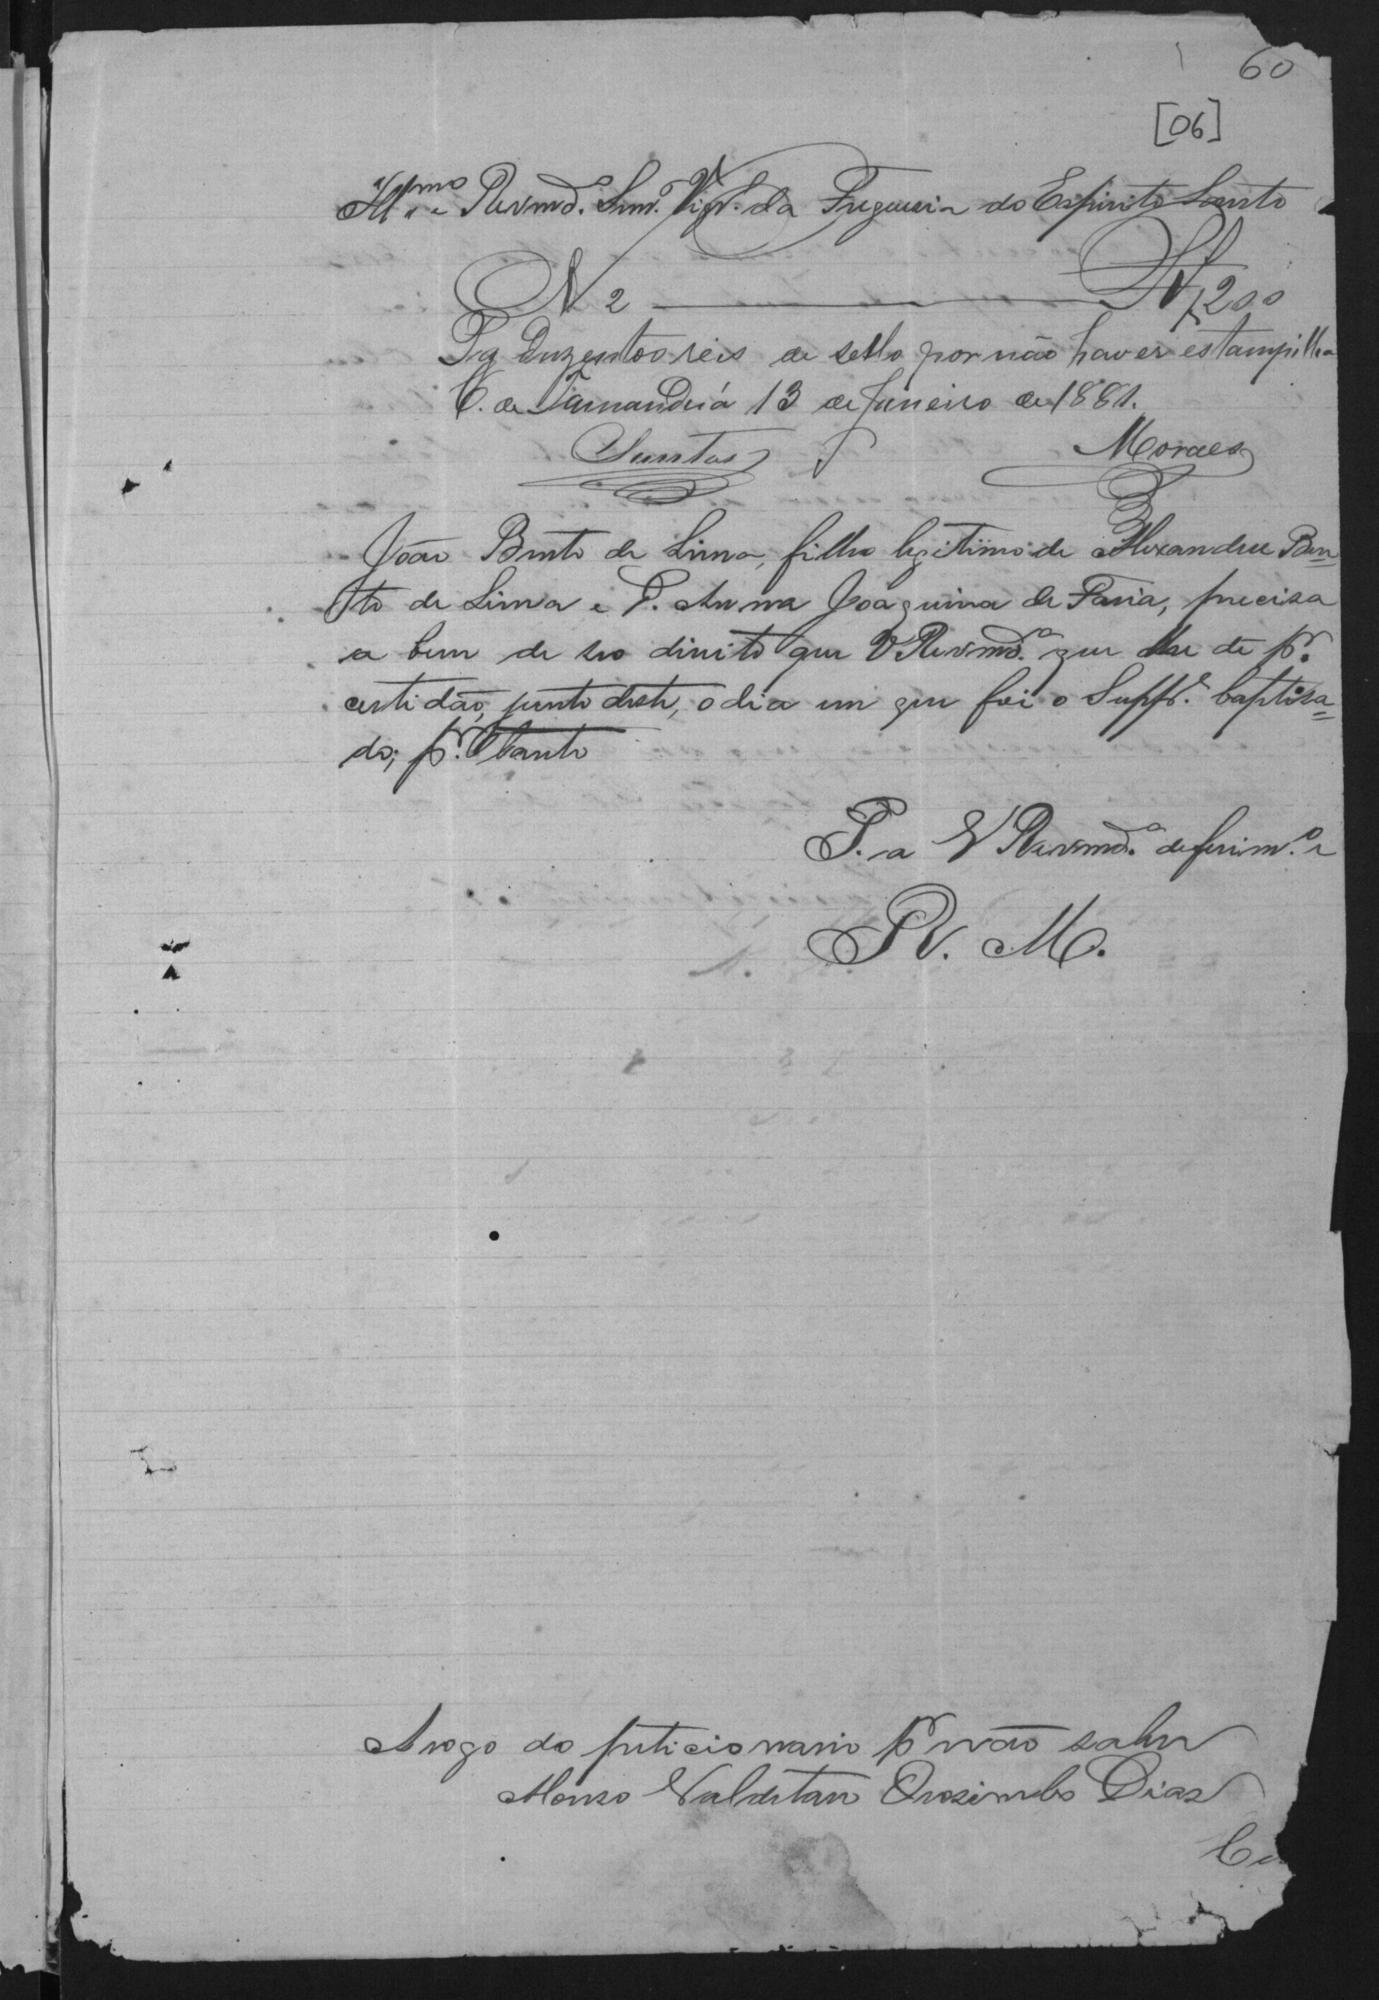 60
[06]
Ill.mo e Revmd.o Snr. Vigr.o da Freguesia do Espirito Santo
N 2 — 200
Pg duzentos reis de sello por não haver estampilha
C. de Tamanduá 13 de Janeiro de 1881.
Santos Moraes
João Bento de Lima, filho legitimo de Alexandre Ben=
to de Lima e D. Anna Joaquina de Faria, precisa
a bem de seo direito que V Revmd.a que lhe dê pr.
certidão, junto deste, o dia em que foi o Supp.e baptisa=
do; pr. tanto
P. a V Revmd.a deferim.o e
R. M.
Arogo do peticionario pr não saber
Orosimbo Dias